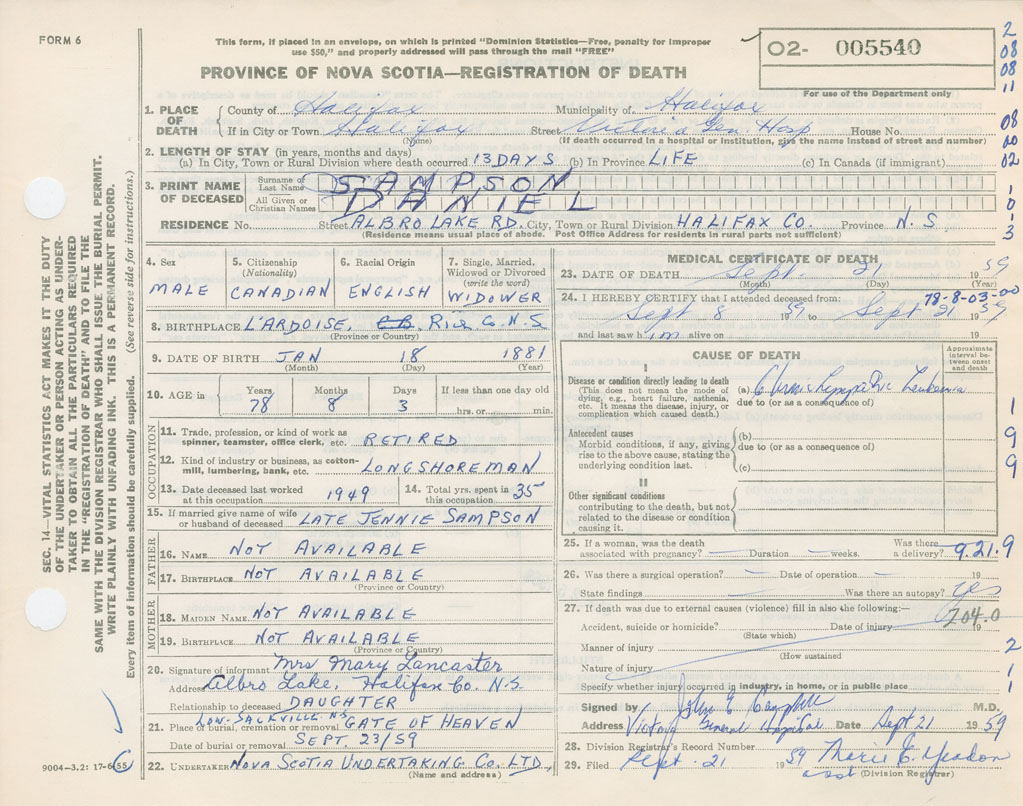 FORM 6
This form, if placed in an envelope, on which is printed "Dominion Statistics—Free, penalty for improper
use $50," and properly addressed will pass through the mail "FREE"
PROVINCE OF NOVA SCOTIA—REGISTRATION OF DEATH
02- 005540
For use of the Department only
2
08
08
11
08
00
02
1
0
3
1. PLACE OF DEATH County of Halifax Municipality of Halifax
If in City or Town Halifax Street Victoria Gen. Hosp House No.
(Name) (If death occurred in a hospital or institution, give the name instead of street and number)
2. LENGTH OF STAY (in years, months and days)
(a) In City, Town or Rural Division where death occurred 13 DAYS (b) In Province LIFE (c) In Canada (if immigrant)
3. PRINT NAME OF DECEASED
Surname or Last Name SAMPSON
All Given or Christian Names DANIEL
RESIDENCE No. Street ALBRO LAKE RD. City, Town or Rural Division HALIFAX CO. Province N.S
(Residence means usual place of abode. Post Office Address for residents in rural parts not sufficient)
4. Sex
MALE
5. Citizenship
(Nationality)
CANADIAN
6. Racial Origin
ENGLISH
7. Single, Married,
Widowed or Divorced
(write the word)
WIDOWER
8. BIRTHPLACE L'ARDOISE, C.B. Ric Co. N.S
(Province or Country)
9. DATE OF BIRTH JAN 18 1881
(Month) (Day) (Year)
10. AGE in
Years Months Days If less than one day old
78 8 3 hrs. or min.
OCCUPATION
11. Trade, profession, or kind of work as
spinner, teamster, office clerk, etc. RETIRED
12. Kind of industry or business, as cotton-
mill, lumbering, bank, etc. LONGSHOREMAN
13. Date deceased last worked
at this occupation 1949
14. Total yrs. spent in
this occupation 35
15. If married give name of wife
or husband of deceased LATE JENNIE SAMPSON
FATHER
16. NAME NOT AVAILABLE
17. BIRTHPLACE NOT AVAILABLE
(Province or Country)
MOTHER
18. MAIDEN NAME NOT AVAILABLE
19. BIRTHPLACE NOT AVAILABLE
(Province or Country)
20. Signature of informant Mrs Mary Lancaster
Address Albro Lake, Halifax Co. N.S.
Relationship to deceased DAUGHTER
LOW. SACKVILLE N.S
21. Place of burial, cremation or removal GATE OF HEAVEN
Date of burial or removal SEPT. 23/59
22. UNDERTAKER NOVA SCOTIA UNDERTAKING CO. LTD.
(Name and address)
MEDICAL CERTIFICATE OF DEATH
23. DATE OF DEATH Sept. 21 1959
(Month) (Day) (Year)
78-8-03-00
24. I HEREBY CERTIFY that I attended deceased from:
Sept 8 1959 to Sept 21 1959
and last saw him alive on 19
CAUSE OF DEATH
Approximate
interval be-
tween onset
and death
I
Disease or condition directly leading to death
(This does not mean the mode of
dying, e.g., heart failure, asthenia,
etc. It means the disease, injury, or
complication which caused death.)
(a) Chronic Lymphatic Leukemia
due to (or as a consequence of)
Antecedent causes
Morbid conditions, if any, giving
rise to the above cause, stating the
underlying condition last.
(b)
due to (or as a consequence of)
(c)
II
Other significant conditions
contributing to the death, but not
related to the disease or condition
causing it.
1
9
9
25. If a woman, was the death
associated with pregnancy? — Duration — weeks. Was there
a delivery? —
9.21.9
26. Was there a surgical operation? — Date of operation — 19
State findings Was there an autopsy? Yes
27. If death was due to external causes (violence) fill in also the following:—
204.0
Accident, suicide or homicide? Date of injury 19
(State which)
Manner of injury
(How sustained
Nature of injury
Specify whether injury occurred in industry, in home, or in public place
2
1
1
Signed by John E Campbell M.D.
Address Victoria General Hospital Date Sept 21 1959
28. Division Registrar's Record Number
29. Filed Sept. 21 1959 Marie E. Yeadon
asst (Division Registrar)
SEC. 14—VITAL STATISTICS ACT MAKES IT THE DUTY
OF THE UNDERTAKER OR PERSON ACTING AS UNDER-
TAKER TO OBTAIN ALL THE PARTICULARS REQUIRED
IN THE "REGISTRATION OF DEATH" AND TO FILE THE
SAME WITH THE DIVISION REGISTRAR WHO SHALL ISSUE THE BURIAL PERMIT.
WRITE PLAINLY WITH UNFADING INK. THIS IS A PERMANENT RECORD.
Every item of information should be carefully supplied. (See reverse side for instructions.)
9004-3.2: 17-6-55